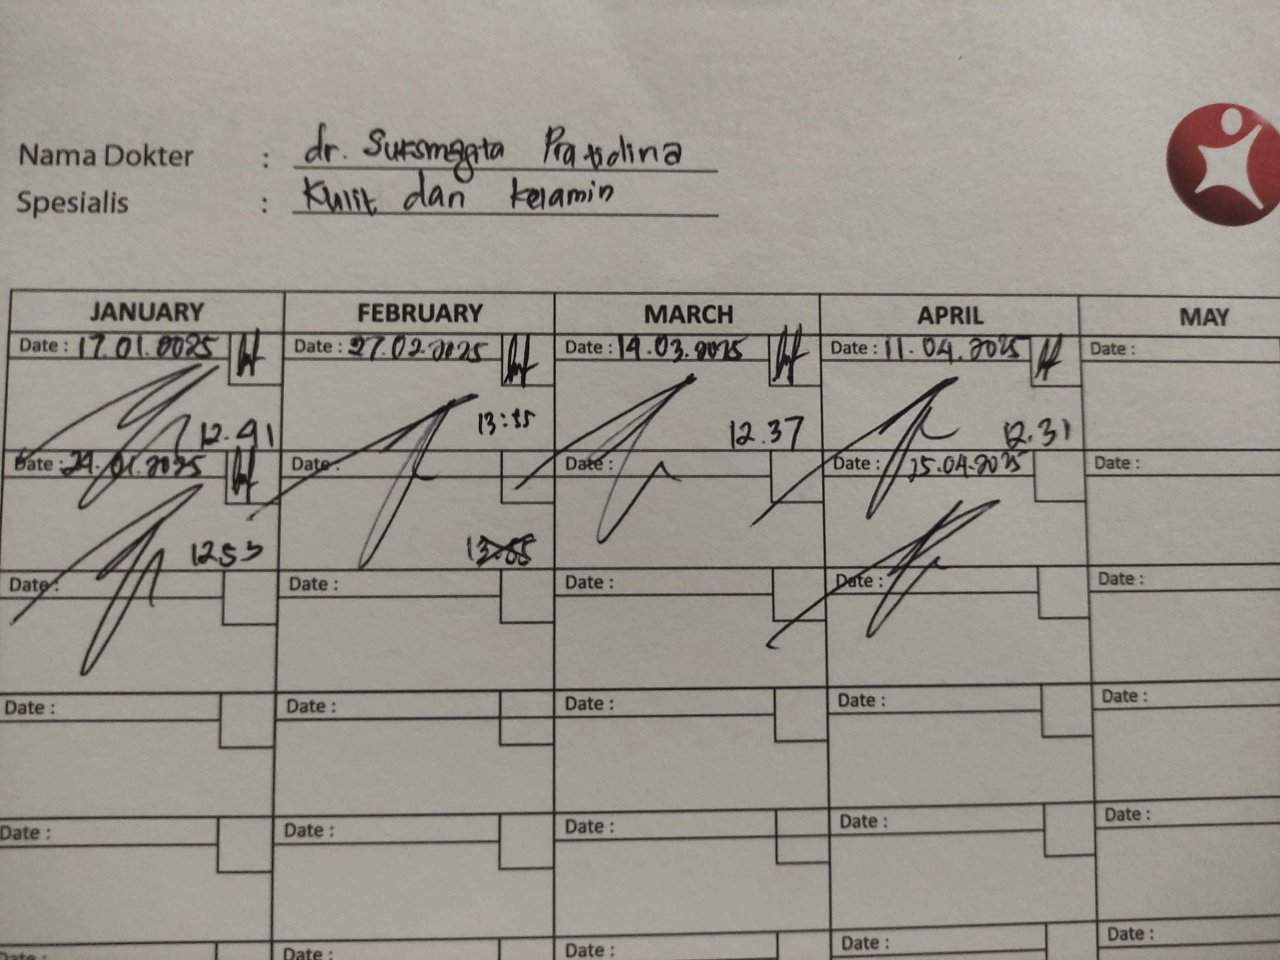 Nama Dokter : dr. Suksmagata Pratidina
Spesialis : Kulit dan kelamin
JANUARY FEBRUARY MARCH APRIL MAY
Date : 17.01.2025 Date : 27.02.2025 Date : 14.03.2025 Date : 11.04.2025 Date :
12.41 13:55 12.37 12.31
Date : 24.01.2025 Date : Date : Date : 25.04.2025 Date :
12 53
Date : Date : Date : Date : Date :
Date : Date : Date : Date : Date :
Date : Date : Date : Date : Date :
Date : Date : Date : Date : Date :